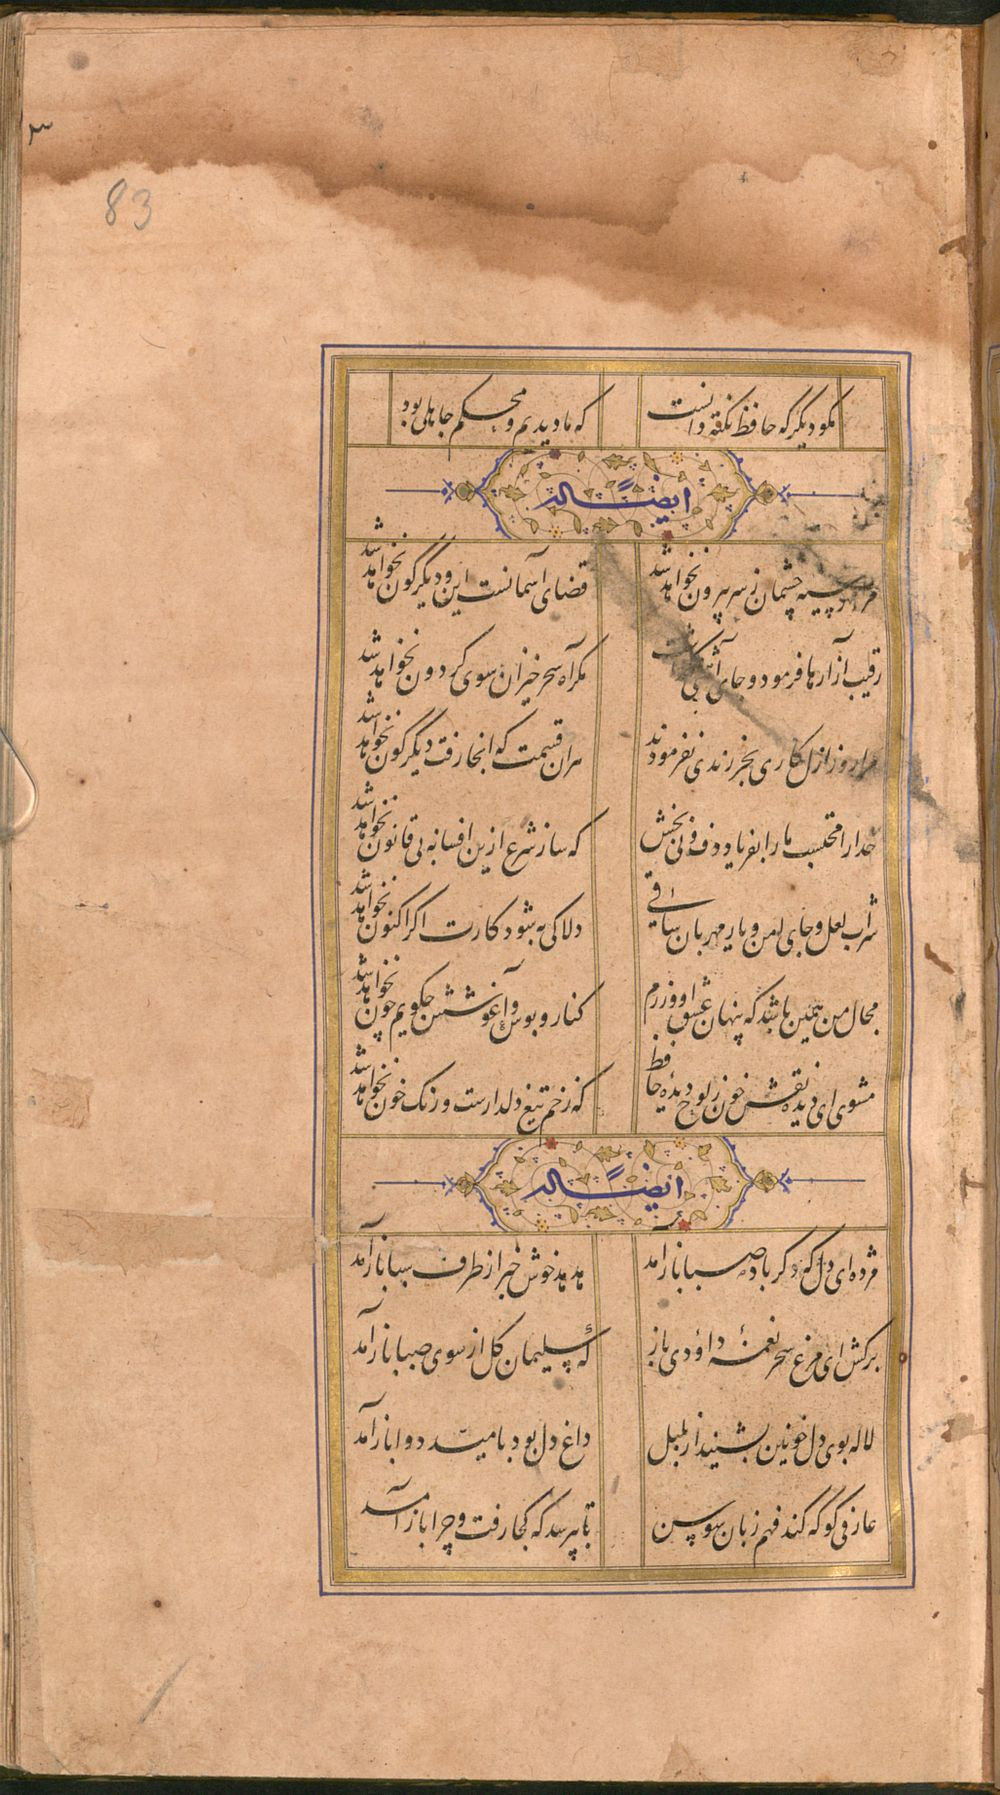 ۳
83
مگو دیگر که حافظ نکته دانست
که ما دیدیم و محکم جاهلی بود
ایضاً له
مرا مهر سیه چشمان ز سر بیرون نخواهد شد
قضای آسمانست این و دیگرگون نخواهد شد
رقیب آزارها فرمود و جای آشتی نگذاشت
مگر آه سحرخیزان سوی گردون نخواهد شد
مرا روز ازل کاری بجز رندی نفرمودند
هران قسمت که انجا رفت دیگرگون نخواهد شد
خدا را محتسب ما را بفریاد دف و نی بخش
که ساز شرع ازین افسانه بی قانون نخواهد شد
شراب لعل و جای امن و یار مهربان ساقی
دلا کی به شود کارت اگر اکنون نخواهد شد
مجال من همین باشد که پنهان عشق او ورزم
کنار و بوس و آغوشش چگویم چون نخواهد شد
مشوی ای دیده نقش خون ز لوح دیده حافظ
که زخم تیغ دلدارست و رنگ خون نخواهد شد
ایضاً له
مژده ای دل که دگر باد صبا باز آمد
هدهد خوش خبر از طرف سبا باز آمد
برکش ای مرغ سحر نغمهٔ داؤدی باز
که سلیمان گل از سوی صبا باز آمد
لاله بوی دل خونین بشنید از بلبل
داغ دل بود بامید دوا باز آمد
عارفی کو که کند فهم زبان سوسن
تا بپرسد که کجا رفت و چرا باز آمد